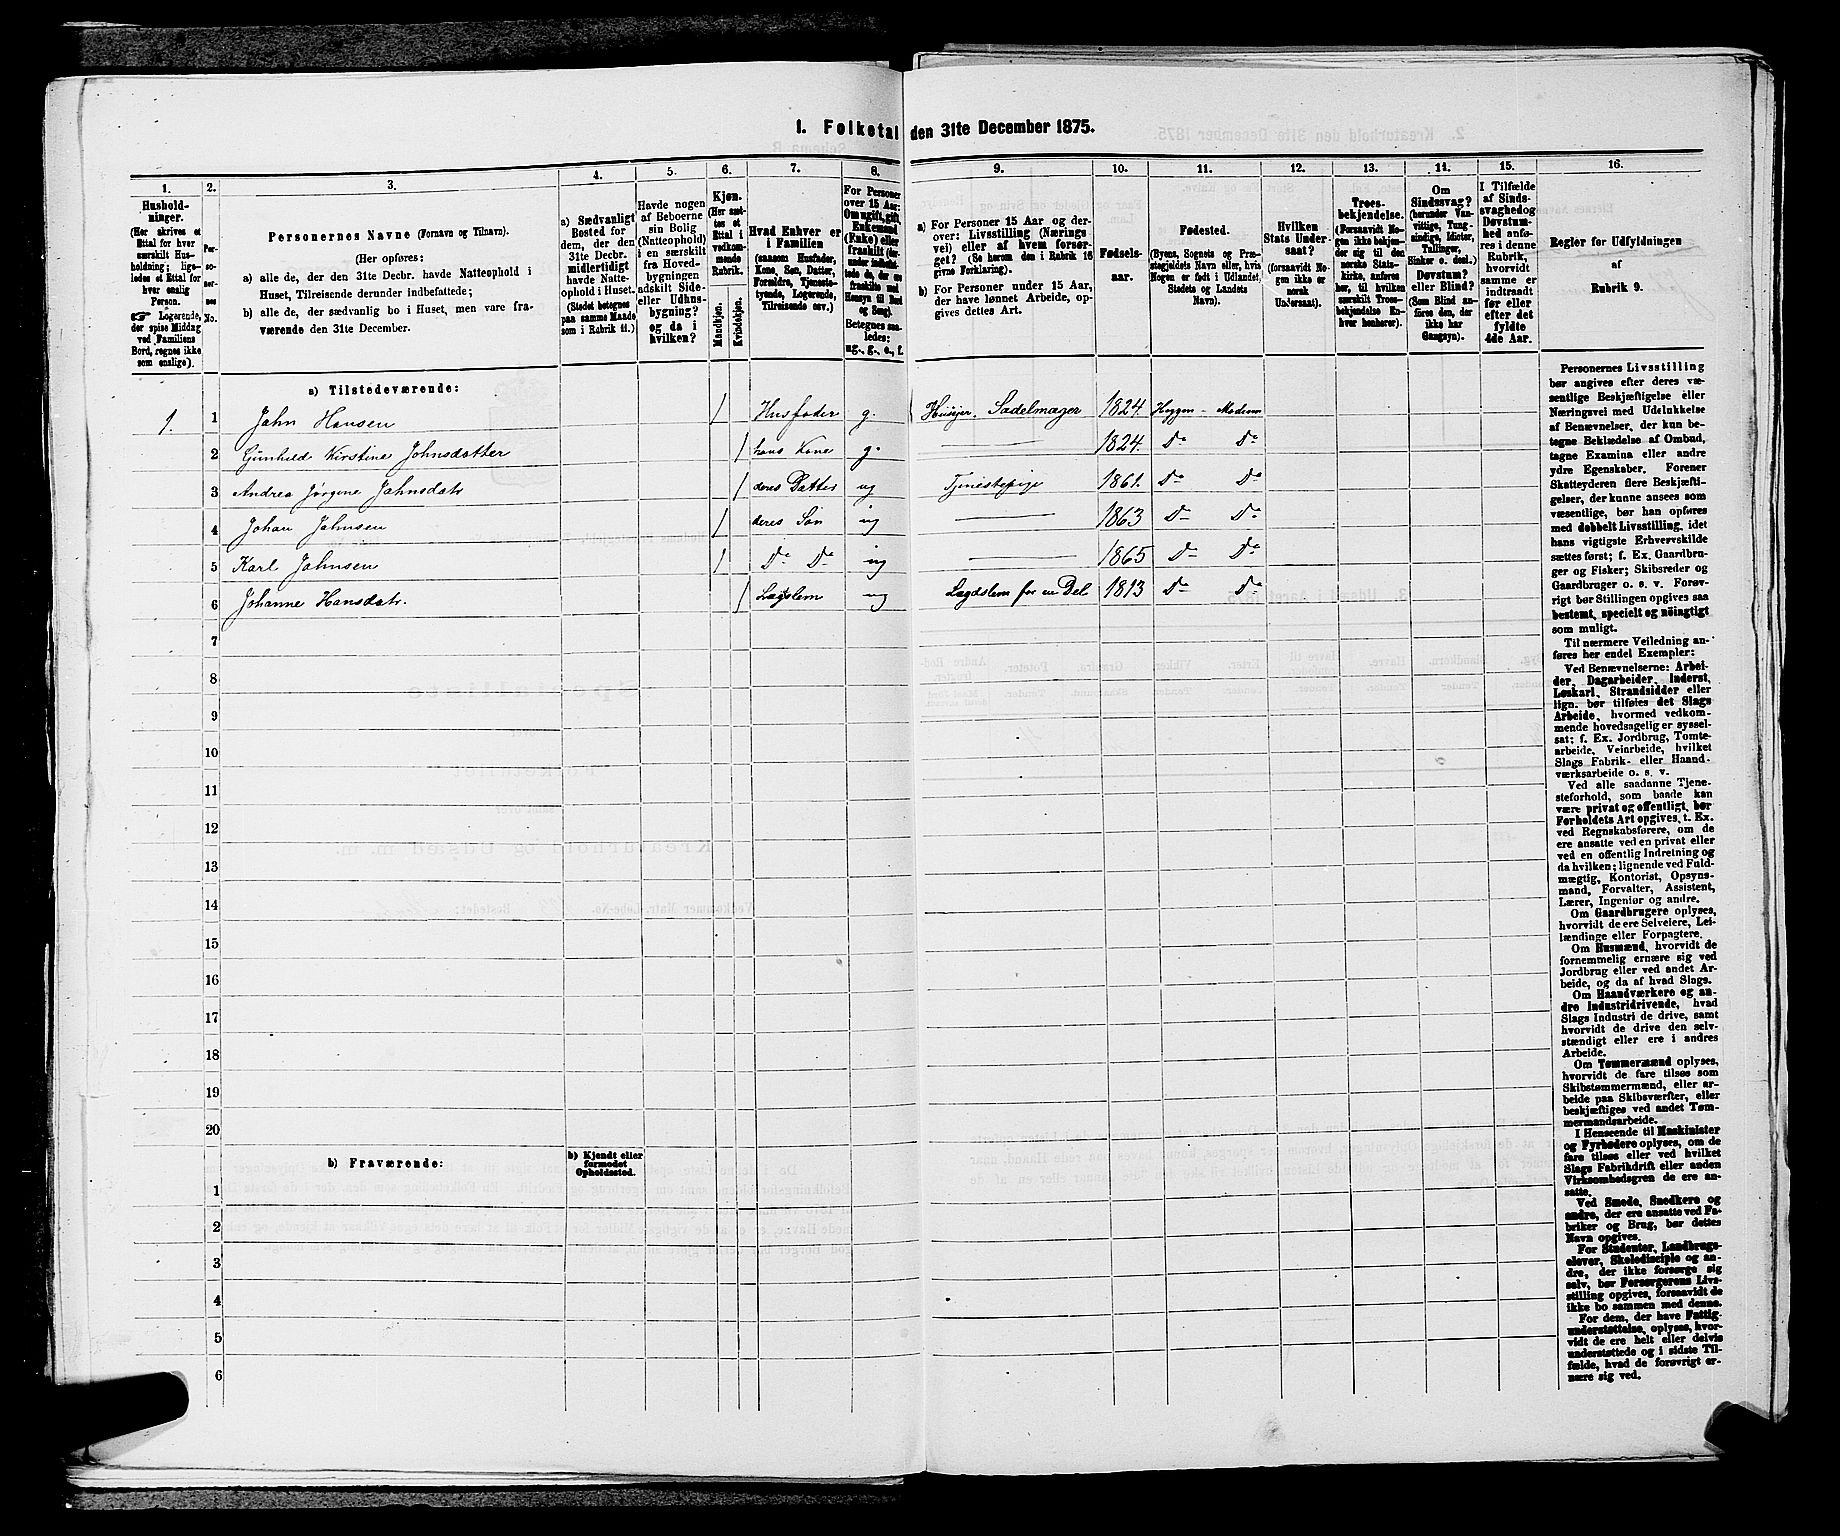 1. Folketal den 31te December 1875.
1.
Hushold-
ninger.
(Her skrives et
Ettal for hver
særskilt Hus-
holdning; lige-
ledes et Ettal for
hver enslig
Person.
Logerende,
der spise Middag
ved Familiens
Bord, regnes ikke
som enslige).
2.
Per-
so-
ner-
nes
No.
3.
Personernes Navne (Fornavn og Tilnavn).
(Her opføres:
a) alle de, der den 31te Decbr. havde Natteophold i
Huset, Tilreisende derunder indbefattede;
b) alle de, der sædvanlig bo i Huset, men vare fra-
værende den 31te December.
4.
a) Sædvanligt
Bosted for
dem, der den
31te Decbr.
midlertidigt
havde Natte-
ophold i Huset.
(Stedet betegnes
paa samme Maade
som i Rubrik 11.)
5.
Havde nogen
af Beboerne
sin Bolig
(Natteophold)
i en særskilt
fra Hoved-
bygningen
adskilt Side-
eller Udhus-
bygning?
og da i
hvilken?
6.
Kjøn.
(Her sæt-
tes et
Ettal i
vedkom-
mende
Rubrik.)
Mandkjøn.
Kvindekjøn.
7.
Hvad Enhver er
i Familien
(saasom Husfader,
Kone, Søn, Datter,
Forældre, Tjeneste-
tyende, Logerende,
Tilreisende osv.)
8.
For Personer
over 15 Aar:
Om ugift, gift,
Enkemand
(Enke) eller
fraskilt (der-
under indbefat-
tede de, der ere
fraskilte med
Hensyn til Bord
og Seng).
Betegnes saa-
ledes:
ug., g., e., f.
9.
a) For Personer 15 Aar og der-
over: Livsstilling (Nærings-
vei) eller af hvem forsør-
get? (Se herom den i Rubrik 16
givne Forklaring.)
b) For Personer under 15 Aar,
der have lønnet Arbeide, op-
gives dettes Art.
10.
Fødsels-
aar.
11.
Fødested.
(Byens, Sognets og Præ-
stegjeldets Navn eller, hvis
Nogen er født i Udlandet,
Stedets og Landets
Navn).
12.
Hvilken
Stats Under-
saat?
(forsaavidt No-
gen ikke er
norsk
Undersaat).
13.
Troes-
bekjendelse.
(Forsaavidt No-
gen ikke bekjen-
der sig til den
norske Stats-
kirke, anføres
her, til hvilken
særskilt Troes-
bekjendelse En-
hver henhører).
14.
Om
Sindssvag?
(herunder Van-
vittige, Tung-
sindige, Idioter,
Tullinger,
Sinker o. desl.)
Døvstum?
eller Blind?
(Som Blind an-
føres den, der
ikke har
Gangsyn).
15.
I Tilfælde
af Sinds-
svaghed og
Døvstum-
hed anfø-
res i denne
Rubrik,
hvorvidt
samme er
indtraadt
før eller
efter det
fyldte
4de Aar.
16.
Regler for Udfyldningen
af
Rubrik 9.
a) Tilstedeværende:
1. 1 John Hansen 1 Husfader g. Huseier, Sadelmager 1824. Heggen - Modum
2 Gunhild Kirstine Johnsdatter 1 hans Kone g. 1824. Do Do
3 Andrea Jørgine Johnsdatr 1 deres Datter ug Tjenestepige 1861. Do Do
4 Johan Johnsen 1 deres Søn ug 1863 Do Do
5 Karl Johnsen 1 Do Do ug 1865 Do Do
6 Johanne Hansdatr. 1 Lægdslem ug Lægdslem for en Del 1813 Do Do
7
8
9
10
11
12
13
14
15
16
17
18
19
20
b) Fraværende:
b) Kjendt eller
formodet
Opholdssted.
1
2
3
4
5
6
Personernes Livsstilling
bør angives efter deres væ-
sentlige Beskjæftigelse eller
Næringsvei med Udelukkelse
af Benævnelser, der kun be-
tegne Beklædelse af Ombud,
tagne Examina eller andre
ydre Egenskaber. Forener
Skatteyderen flere Beskjæfti-
gelser, der kunne ansees som
væsentlige, bør han opføres
med dobbelt Livsstilling, idet
hans vigtigste Erhvervskilde
sættes først; f. Ex. Gaardbru-
ger og Fisker; Skibsreder og
Gaardbruger o. s. v. Forøv-
rigt bør Stillingen opgives saa
bestemt, specielt og nøiagtigt
som muligt.
Til nærmere Veiledning an-
føres her endel Exempler:
Ved Benævnelserne: Arbei-
der, Dagarbeider, Inderst,
Løskarl, Strandsidder eller
lign. bør tilføies det Slags
Arbeide, hvormed vedkom-
mende hovedsagelig er syssel-
sat; f. Ex. Jordbrug, Tomte-
arbeide, Veiarbeide, hvilket
Slags Fabrik- eller Haand-
værksarbeide o. s. v.
Ved alle saadanne Tjene-
steforhold, som baade kan
være privat og offentligt, bør
Forholdets Art opgives, t. Ex.
ved Regnskabsførere, om de
ere ansatte ved en privat eller
ved en offentlig Indretning og
da hvilken; lignende ved Fuld-
mægtig, Kontorist, Opsyns-
mand, Forvalter, Assistent,
Lærer, Ingeniør og andre.
Om Gaardbrugere oplyses,
hvorvidt de ere Selveiere, Lei-
lændinge eller Forpagtere.
Om Husmænd, hvorvidt de
fornemmelig ernære sig ved
Jordbrug eller ved andet Ar-
beide, og da af hvad Slags.
Om Haandværkere og an-
dre Industridrivende, hvad
Slags Industri de drive, samt
hvorvidt de drive den selv-
stændigt eller ere i andres
Arbeide.
Om Tømmermænd oplyses,
hvorvidt de fare tilsøs som
Skibstømmermænd, eller ar-
beide paa Skibsværfter, eller
beskjæftiges ved andet Tøm-
mermandsarbeide.
I Henseende til Maskinister
og Fyrbødere oplyses, om de
fare tilsøs eller ved hvilket
Slags Fabrikdrift eller anden
Virksomhedsgren de ere an-
satte.
Ved Smede, Snedkere og
andre, der ere ansatte ved Fa-
briker og Brug, bør dettes
Navn opgives.
For Studenter, Landbrugs-
elever, Skoledisciple og an-
dre, der ikke forsørge sig
selv, bør Forsørgerens Livs-
stilling opgives, forsaavidt de
ikke bo sammen med denne.
For dem, der have Fattig-
understøttelse, oplyses, hvor-
vidt de ere helt eller delvis
understøttede og i sidste Til-
fælde, hvad de forøvrigt er-
nære sig ved.